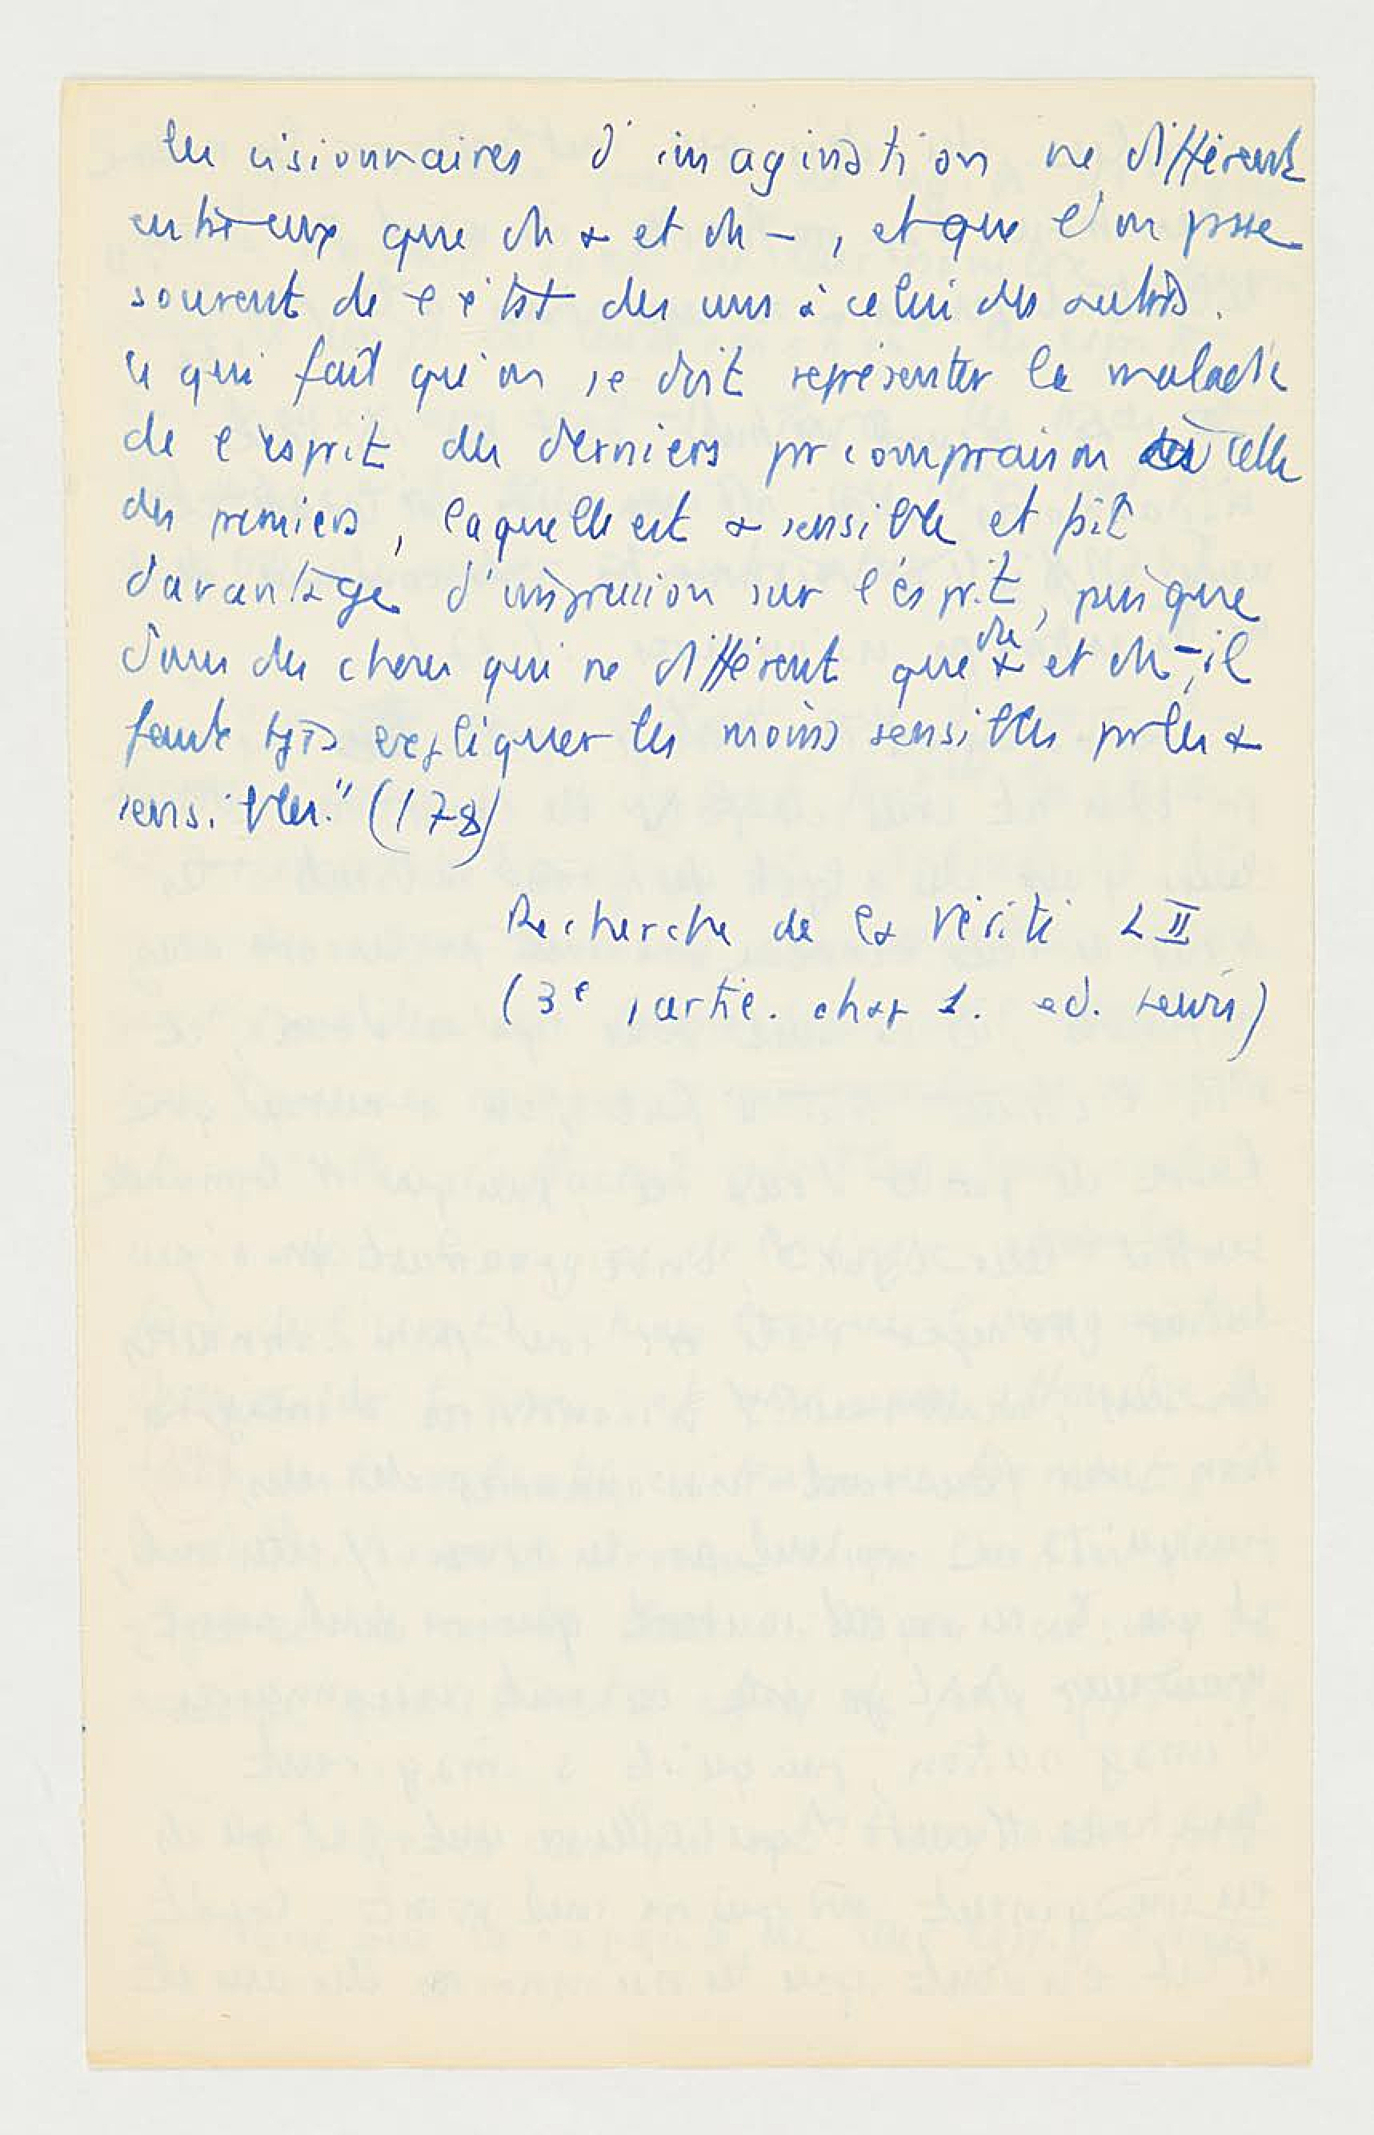 les visionnaires d'imagination ne diffèrent
entre eux que du + et du –, et que l'on passe
souvent de l'état des uns à celui des autres.
Ce qui fait qu'on se doit représenter la maladie
de l'esprit des derniers pr comparaison à celle
des premiers, laquelle est + sensible et fait
davantage d'impression sur l'esprit, puisque
dans des choses qui ne diffèrent que du + et du –, il
faut tjrs expliquer les moins sensibles pr les +
sensibles." (178)
Recherche de la Vérité L II
(3e partie. chap 1. ed. Lewis)